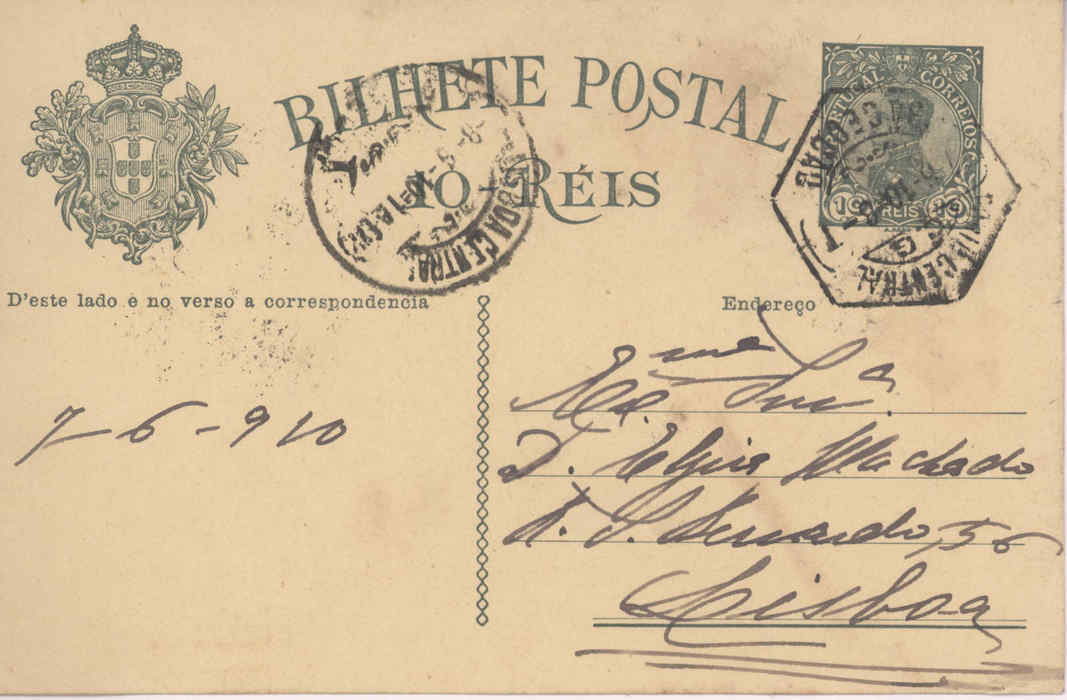 BILHETE POSTAL
10 RÉIS
PORTUGAL CORREIOS
10 REIS 10
CENTRAL
CENTRAL
D'este lado e no verso a correspondencia
Endereço
7-6-910
Exma. Snra.
D. Elzira Machado
R. S. Bernardo, 56
Lisboa